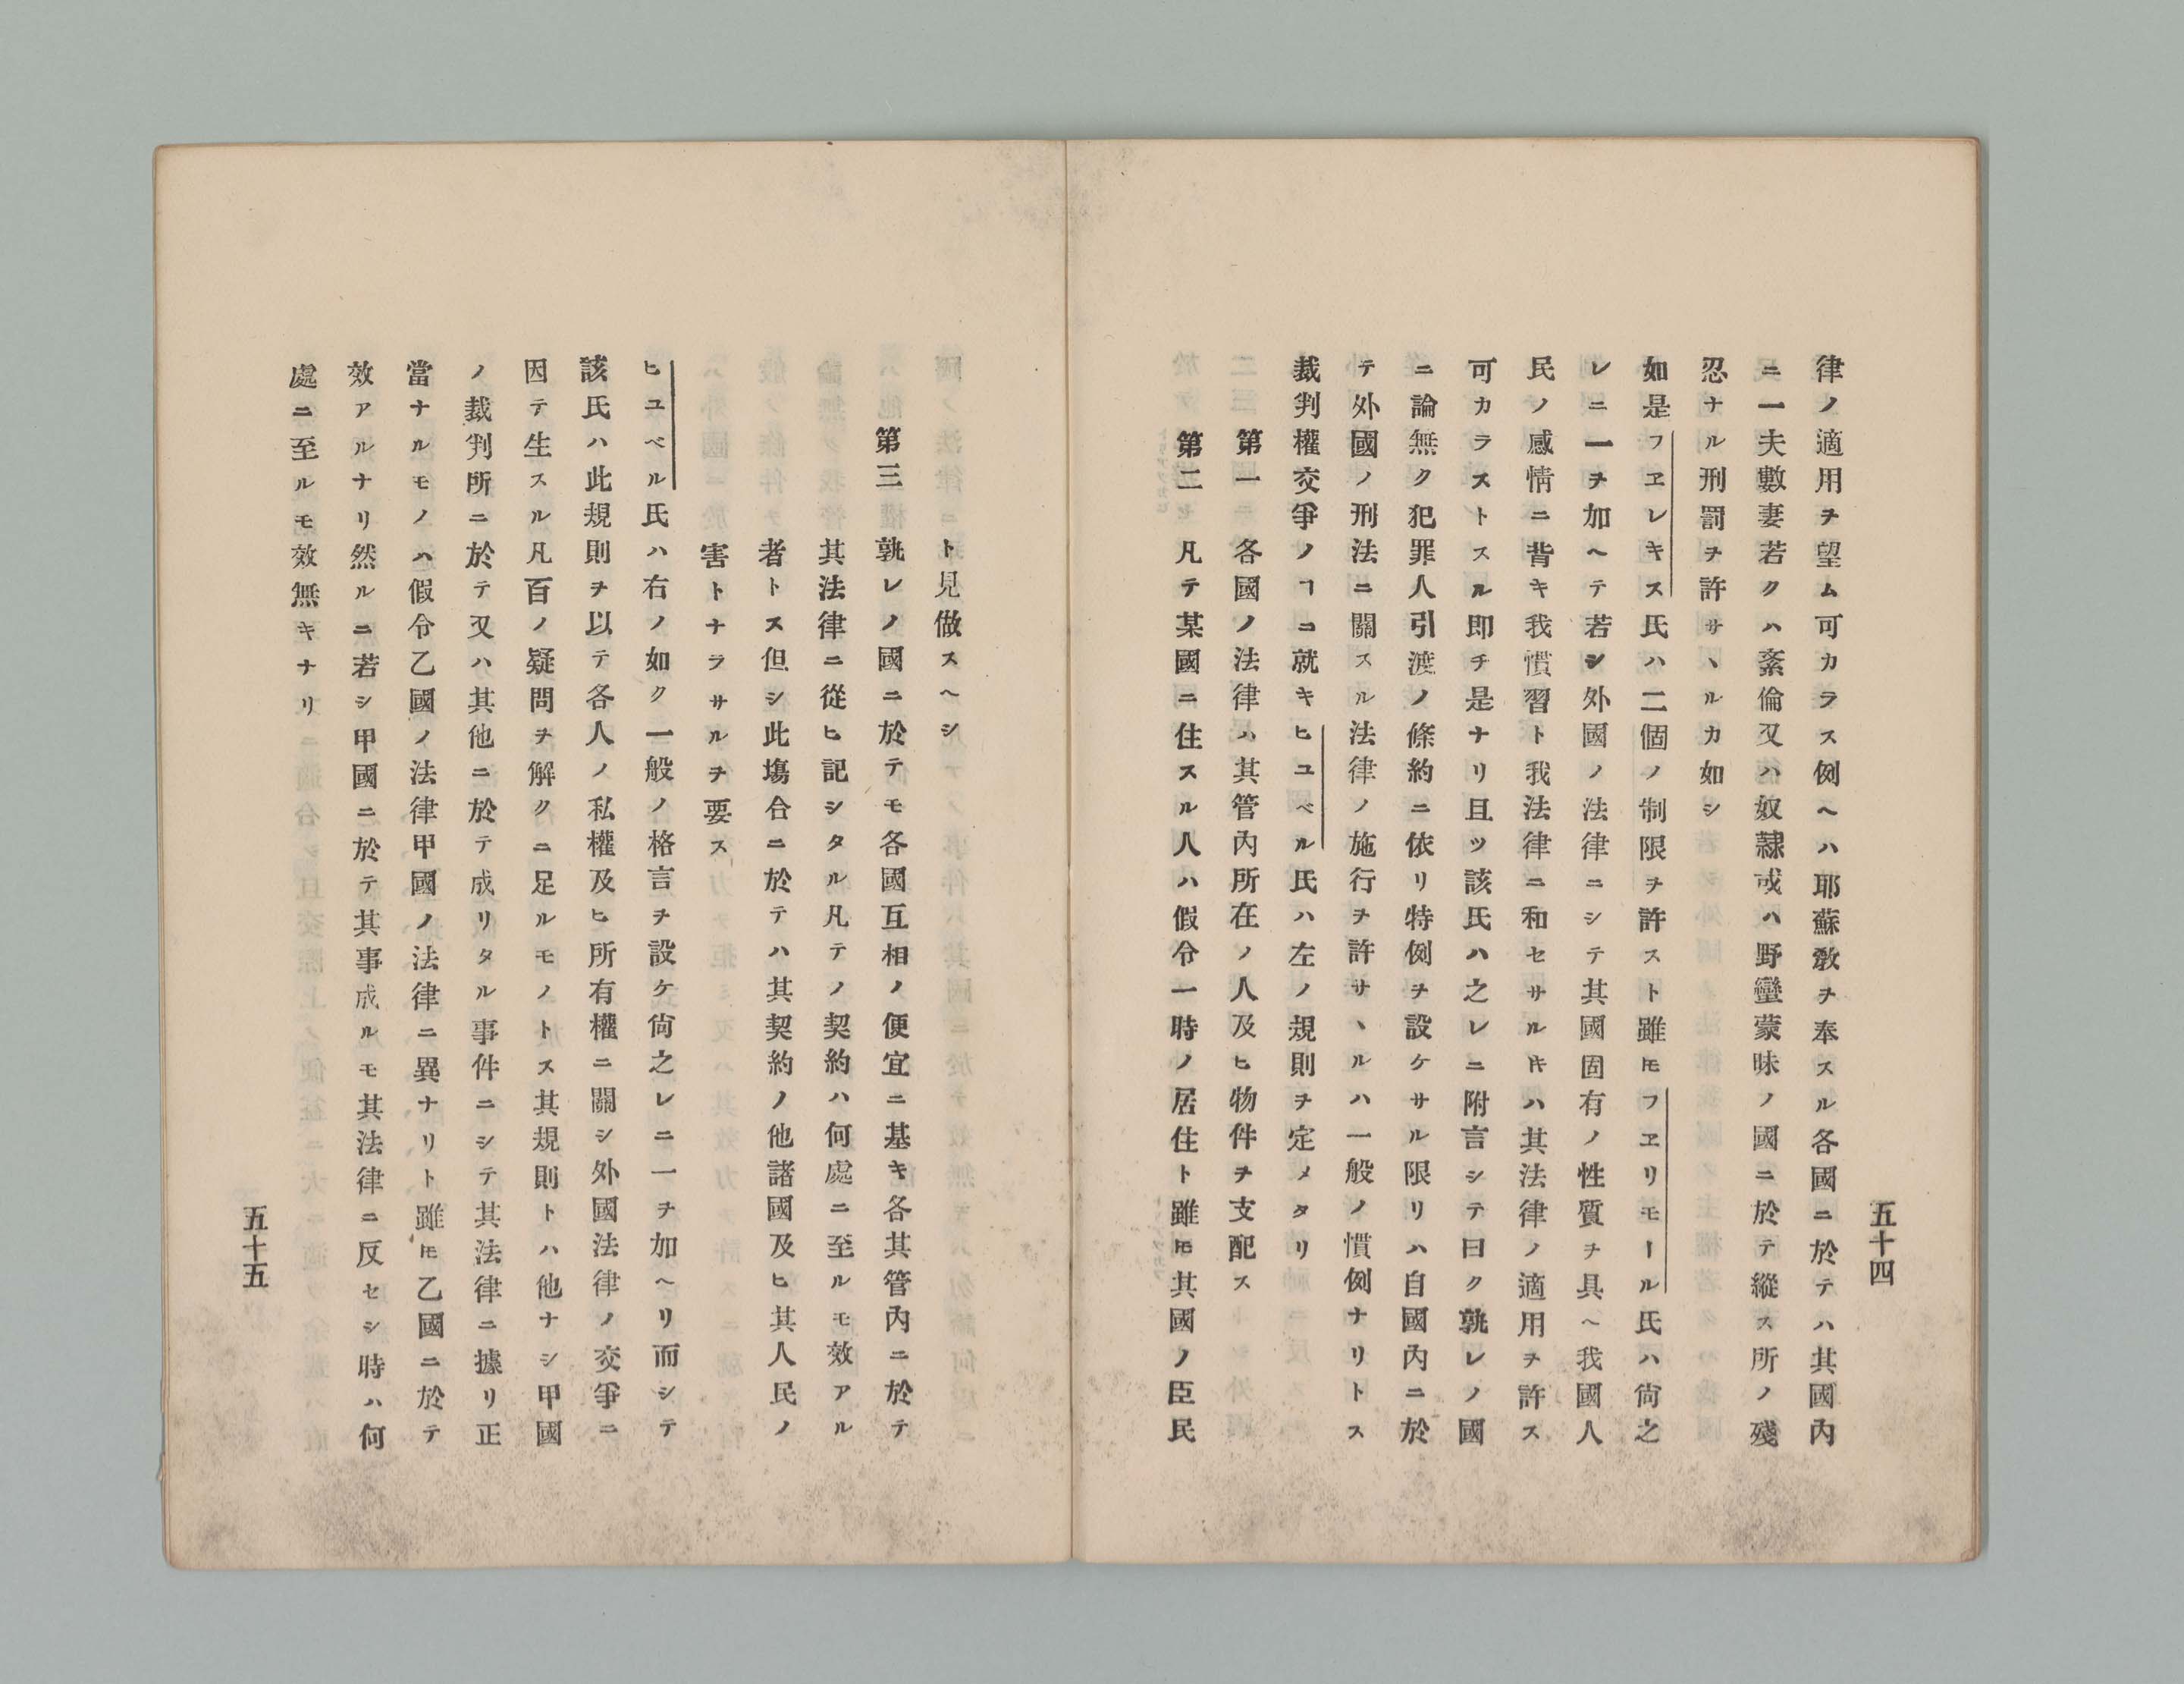 五十四
律ノ適用ヲ望ム可カラス例ヘハ耶蘇敎ヲ奉スル各國ニ於テハ其國內
ニ一夫數妻若クハ紊倫又ハ奴隸或ハ野蠻蒙昧ノ國ニ於テ縱ス所ノ殘
忍ナル刑罰ヲ許サヽルカ如シ
如是フヱレキス氏ハ二個ノ制限ヲ許スト雖𪜈フヱリモール氏ハ尙之
レニ一ヲ加ヘテ若シ外國ノ法律ニシテ其國固有ノ性質ヲ具ヘ我國人
民ノ感情ニ背キ我慣習ト我法律ニ和セサルキハ其法律ノ適用ヲ許ス
可カラストスル即チ是ナリ且ツ該氏ハ之レニ附言シテ曰ク孰レノ國
ニ論無ク犯罪人引渡ノ條約ニ依リ特例ヲ設ケサル限リハ自國內ニ於
テ外國ノ刑法ニ關スル法律ノ施行ヲ許サヽルハ一般ノ慣例ナリトス
裁判權交爭ノヿニ就キヒユベル氏ハ左ノ規則ヲ定メタリ
第一 各國ノ法律ハ其管內所在ノ人及ヒ物件ヲ支配ス
第二 凡テ某國ニ住スル人ハ假令一時ノ居住ト雖𪜈其國ノ臣民
ト見做スヘシ
第三 孰レノ國ニ於テモ各國互相ノ便宜ニ基キ各其管內ニ於テ
其法律ニ從ヒ記シタル凡テノ契約ハ何處ニ至ルモ效アル
者トス但シ此塲合ニ於テハ其契約ノ他諸國及ヒ其人民ノ
害トナラサルヲ要ス
ヒユベル氏ハ右ノ如ク一般ノ格言ヲ設ケ尙之レニ一ヲ加ヘリ而シテ
該氏ハ此規則ヲ以テ各人ノ私權及ヒ所有權ニ關シ外國法律ノ交爭ニ
因テ生スル凡百ノ疑問ヲ解クニ足ルモノトス其規則トハ他ナシ甲國
ノ裁判所ニ於テ又ハ其他ニ於テ成リタル事件ニシテ其法律ニ據リ正
當ナルモノハ假令乙國ノ法律甲國ノ法律ニ異ナリト雖𪜈乙國ニ於テ
效アルナリ然ルニ若シ甲國ニ於テ其事成ルモ其法律ニ反セシ時ハ何
處ニ至ルモ效無キナリ
五十五